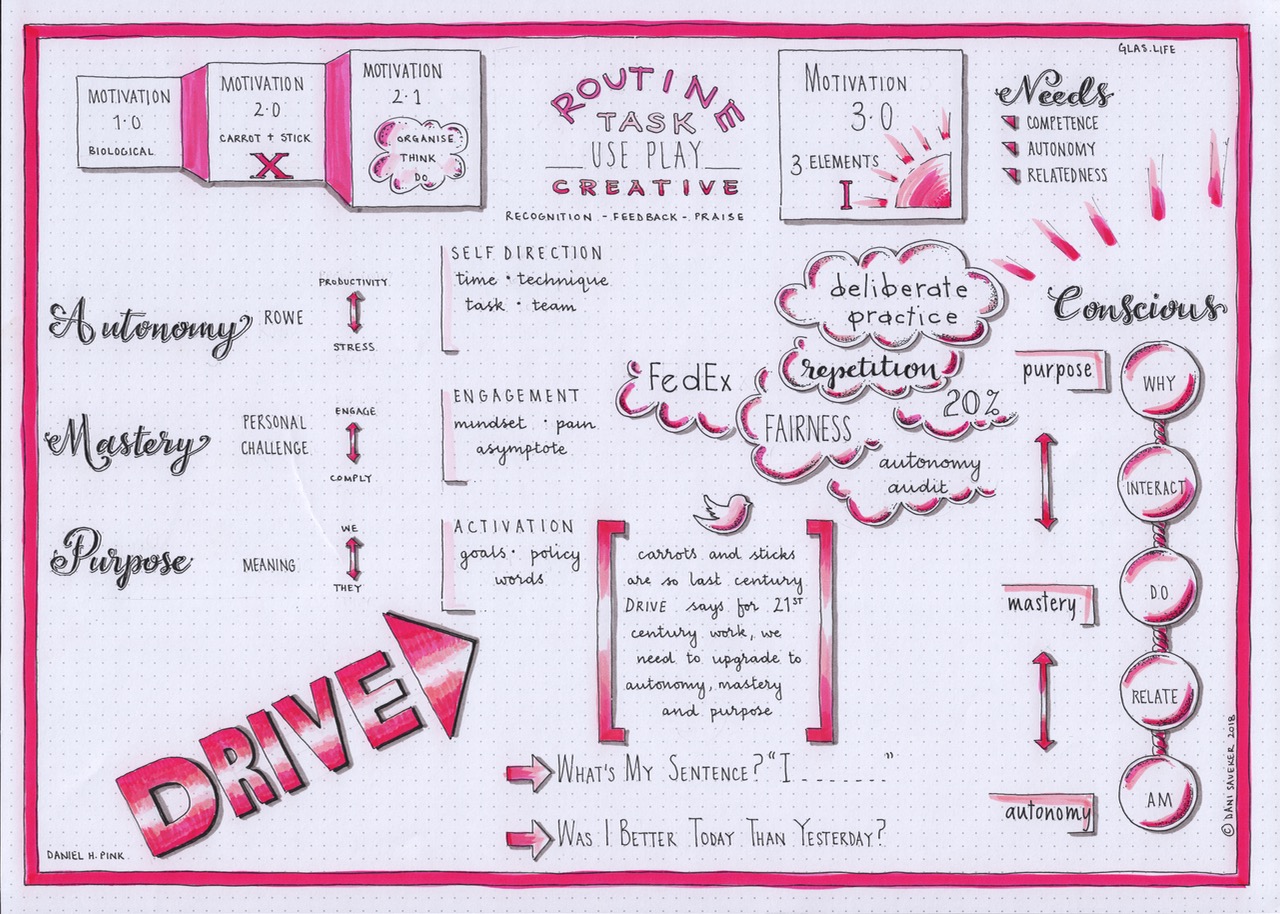 GLAS.LIFE
MOTIVATION
1.0
BIOLOGICAL
MOTIVATION
2.0
CARROT + STICK
X
MOTIVATION
2.1
ORGANISE
THINK
DO
ROUTINE
TASK
USE PLAY
CREATIVE
RECOGNITION - FEEDBACK - PRAISE
MOTIVATION
3.0
3 ELEMENTS
I
Needs
COMPETENCE
AUTONOMY
RELATEDNESS
Autonomy
ROWE
PRODUCTIVITY
STRESS
SELF DIRECTION
time · technique
task · team
Mastery
PERSONAL
CHALLENGE
ENGAGE
COMPLY
ENGAGEMENT
mindset · pain
asymptote
Purpose
MEANING
WE
THEY
ACTIVATION
goals · policy
words
deliberate
practice
repetition
FedEx
20%
FAIRNESS
autonomy
audit
carrots and sticks
are so last century
DRIVE says for 21ST
century work, we
need to upgrade to
autonomy, mastery
and purpose
Conscious
purpose
WHY
INTERACT
mastery
DO
RELATE
autonomy
AM
DRIVE
WHAT'S MY SENTENCE? "I ........"
WAS I BETTER TODAY THAN YESTERDAY?
DANIEL H. PINK
© DANI SAVEKER 2018